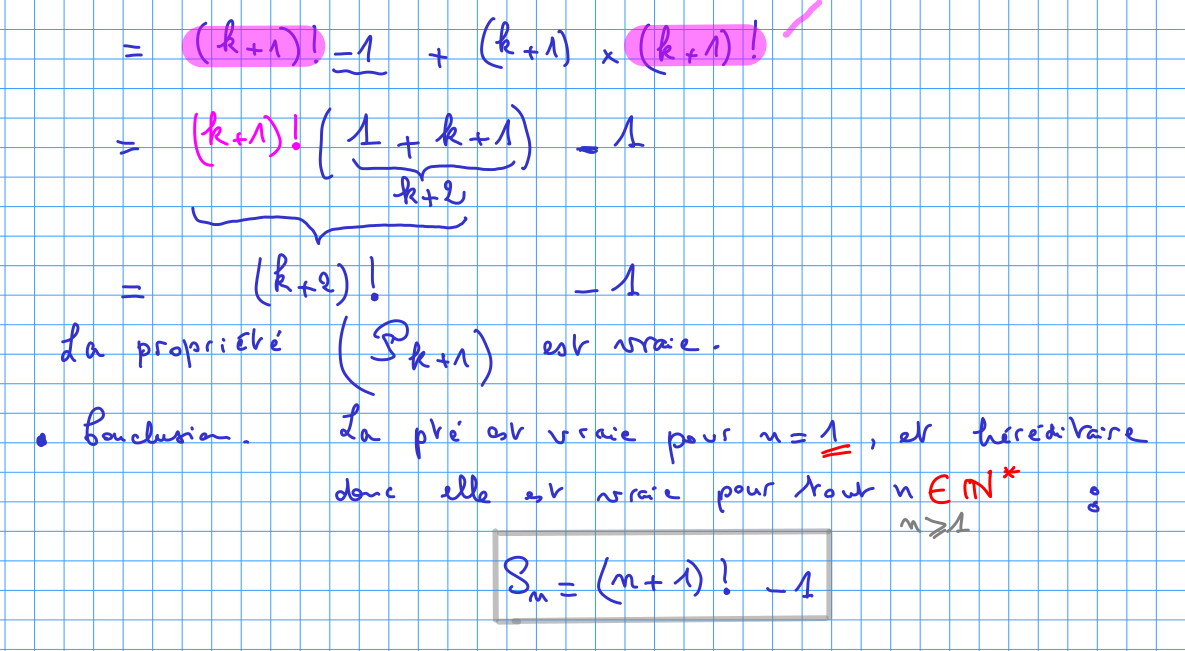 = (k+1)! -1 + (k+1) × (k+1)!
= (k+1)! (1 + k+1) - 1
k+2
= (k+2)! - 1
La propriété (P_{k+1}) est vraie.
• Conclusion. La pté est vraie pour n = 1, et héréditaire
donc elle est vraie pour tout n ∈ ℕ* :
n ⩾ 1
S_n = (n+1)! - 1